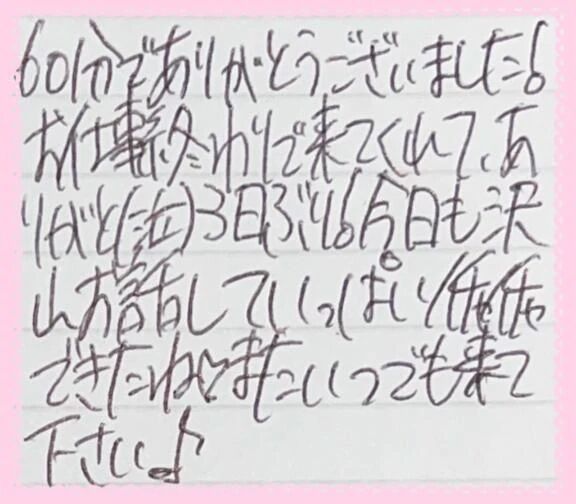 60分でありがとうございました!
お仕事終わりで来てくれて、あ
りがと(泣)3日ぶり!今日も沢
山お話していっぱいイチャイチャ
できたね♡またいつでも来て
下さい♪